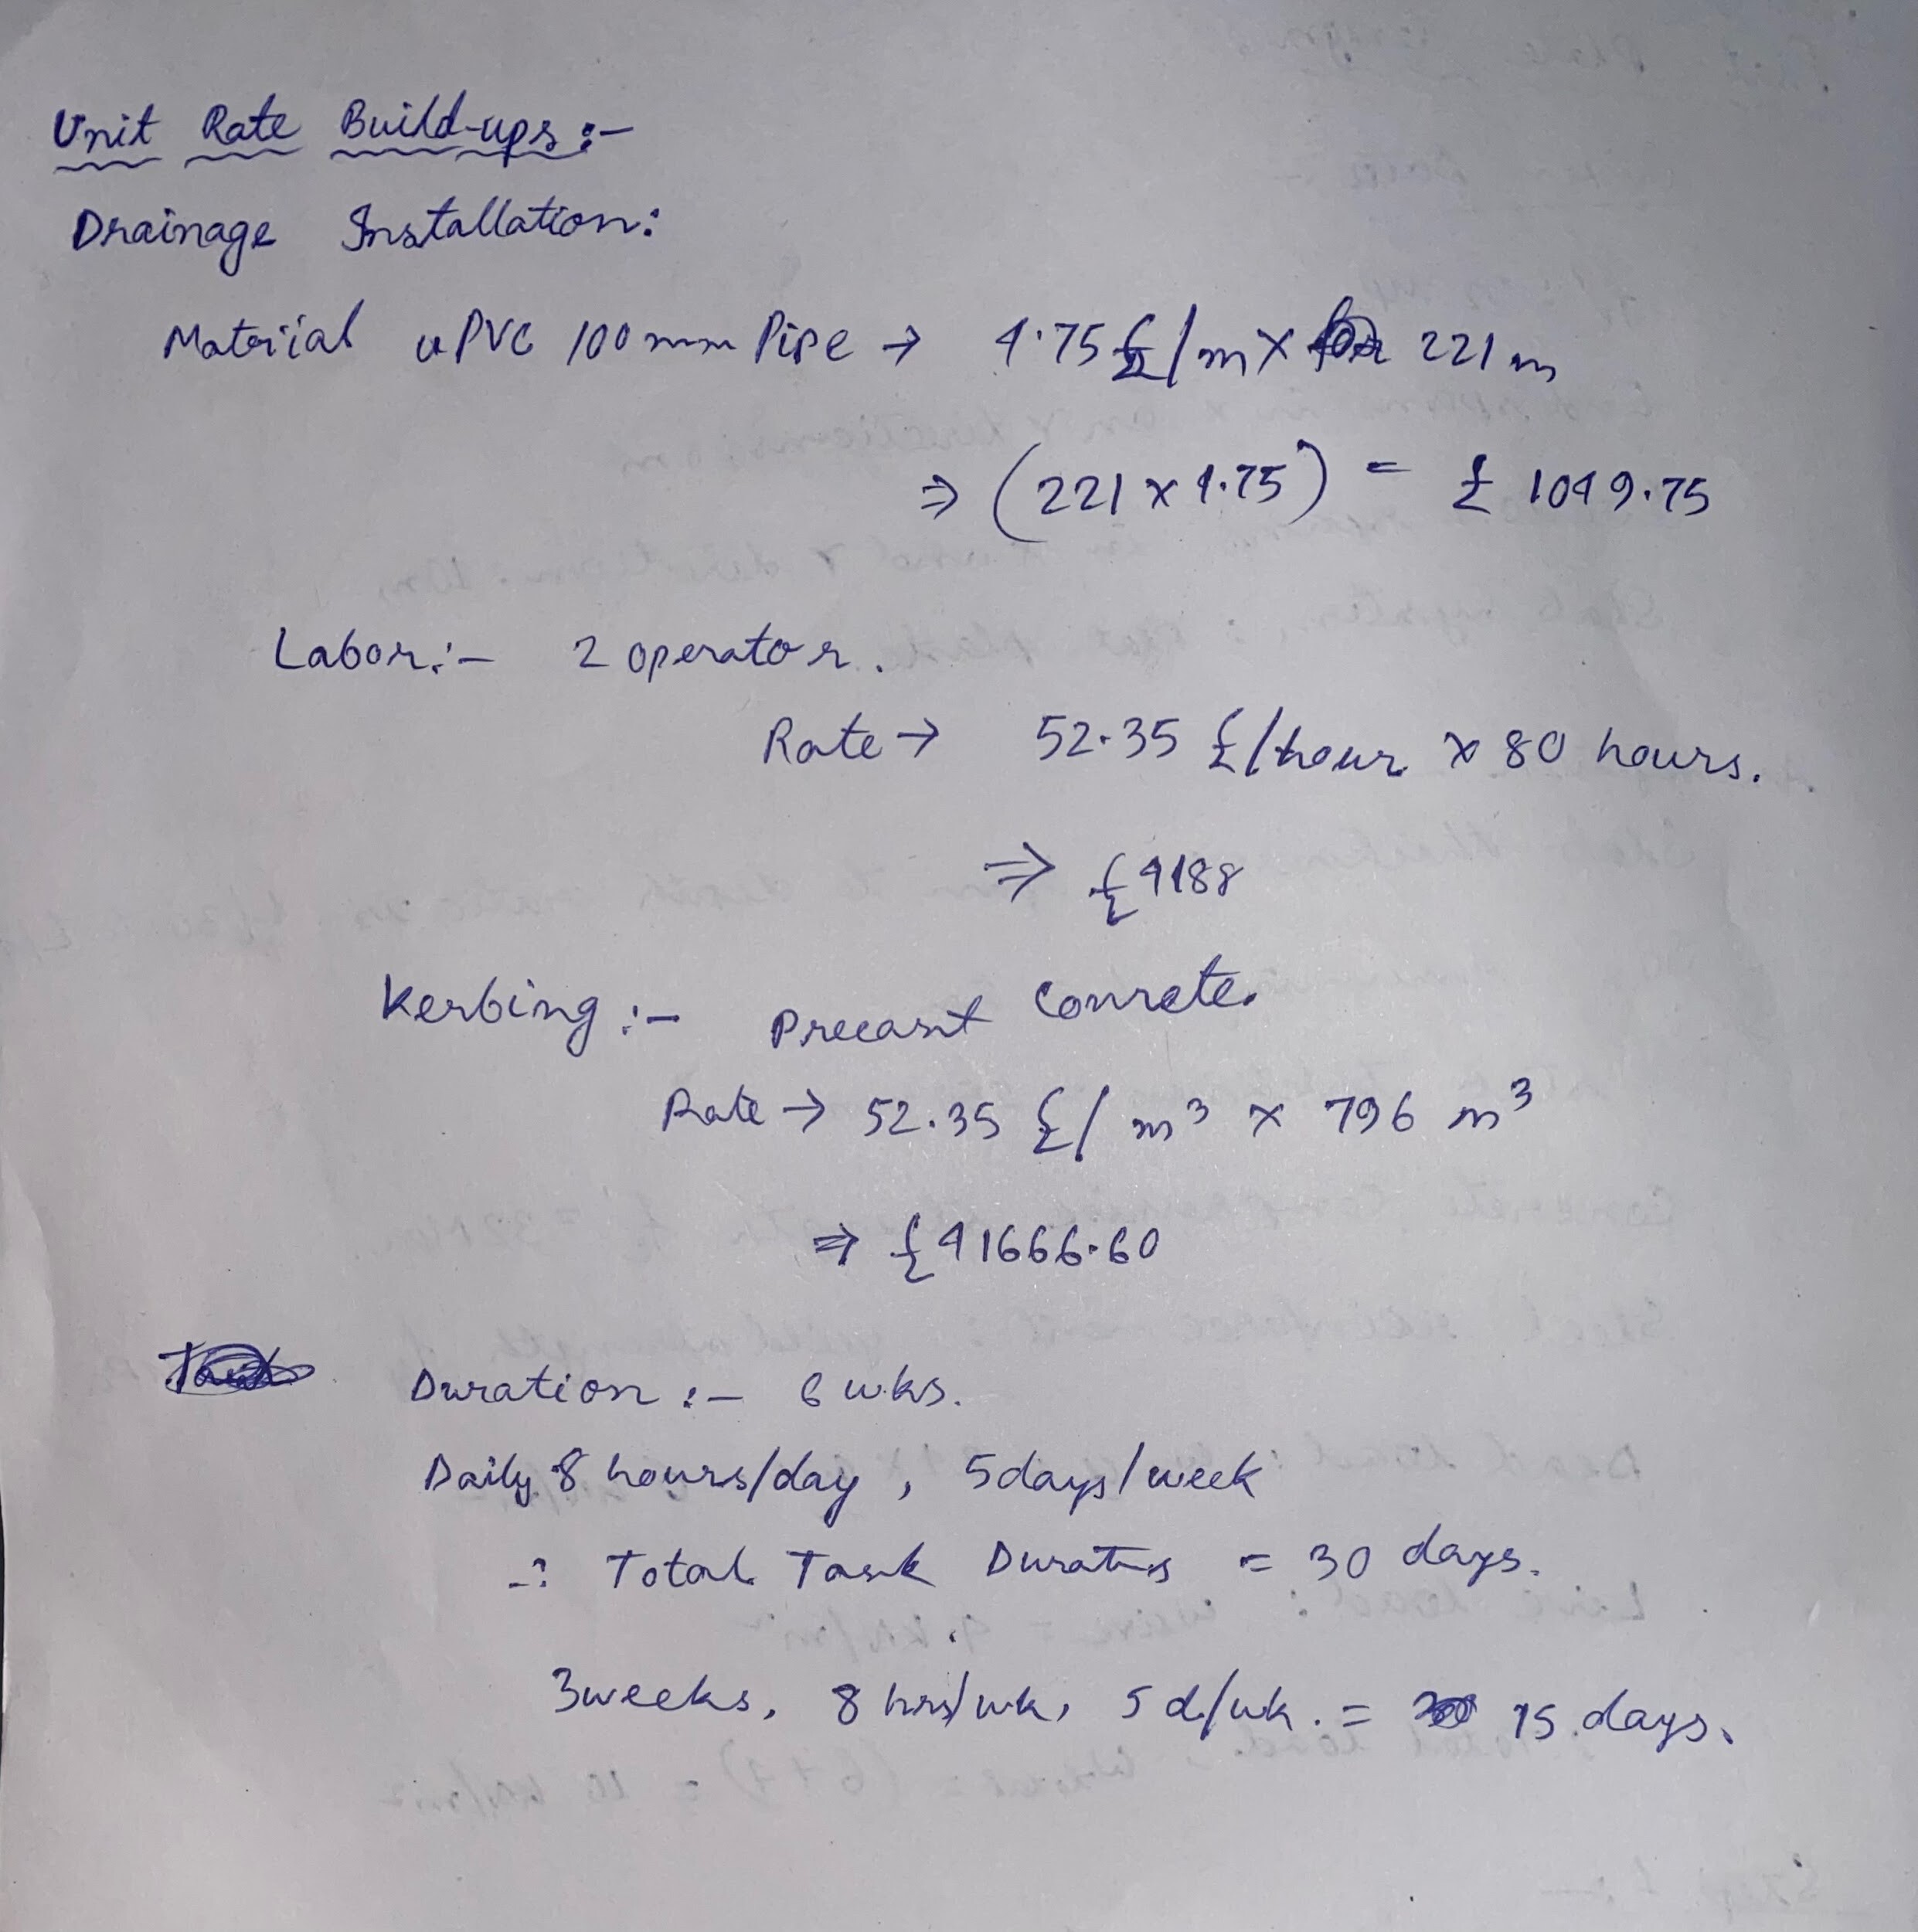 Unit Rate Build-ups :-
Drainage Installation:
Material uPVC 100 mm Pipe → 4.75 £/m × 221 m
⇒ (221 × 4.75) = £ 1049.75
Labor :- 2 operator.
Rate → 52.35 £/hour × 80 hours.
⇒ £4188
Kerbing :- Precast Conrete.
Rate → 52.35 £/ m³ × 796 m³
⇒ £41666.60
Duration :- 6 wks.
Daily 8 hours/day , 5days/week
∴ Total Task Duration = 30 days.
3weeks, 8 hrs/wk, 5 d/wk. = 15 days.